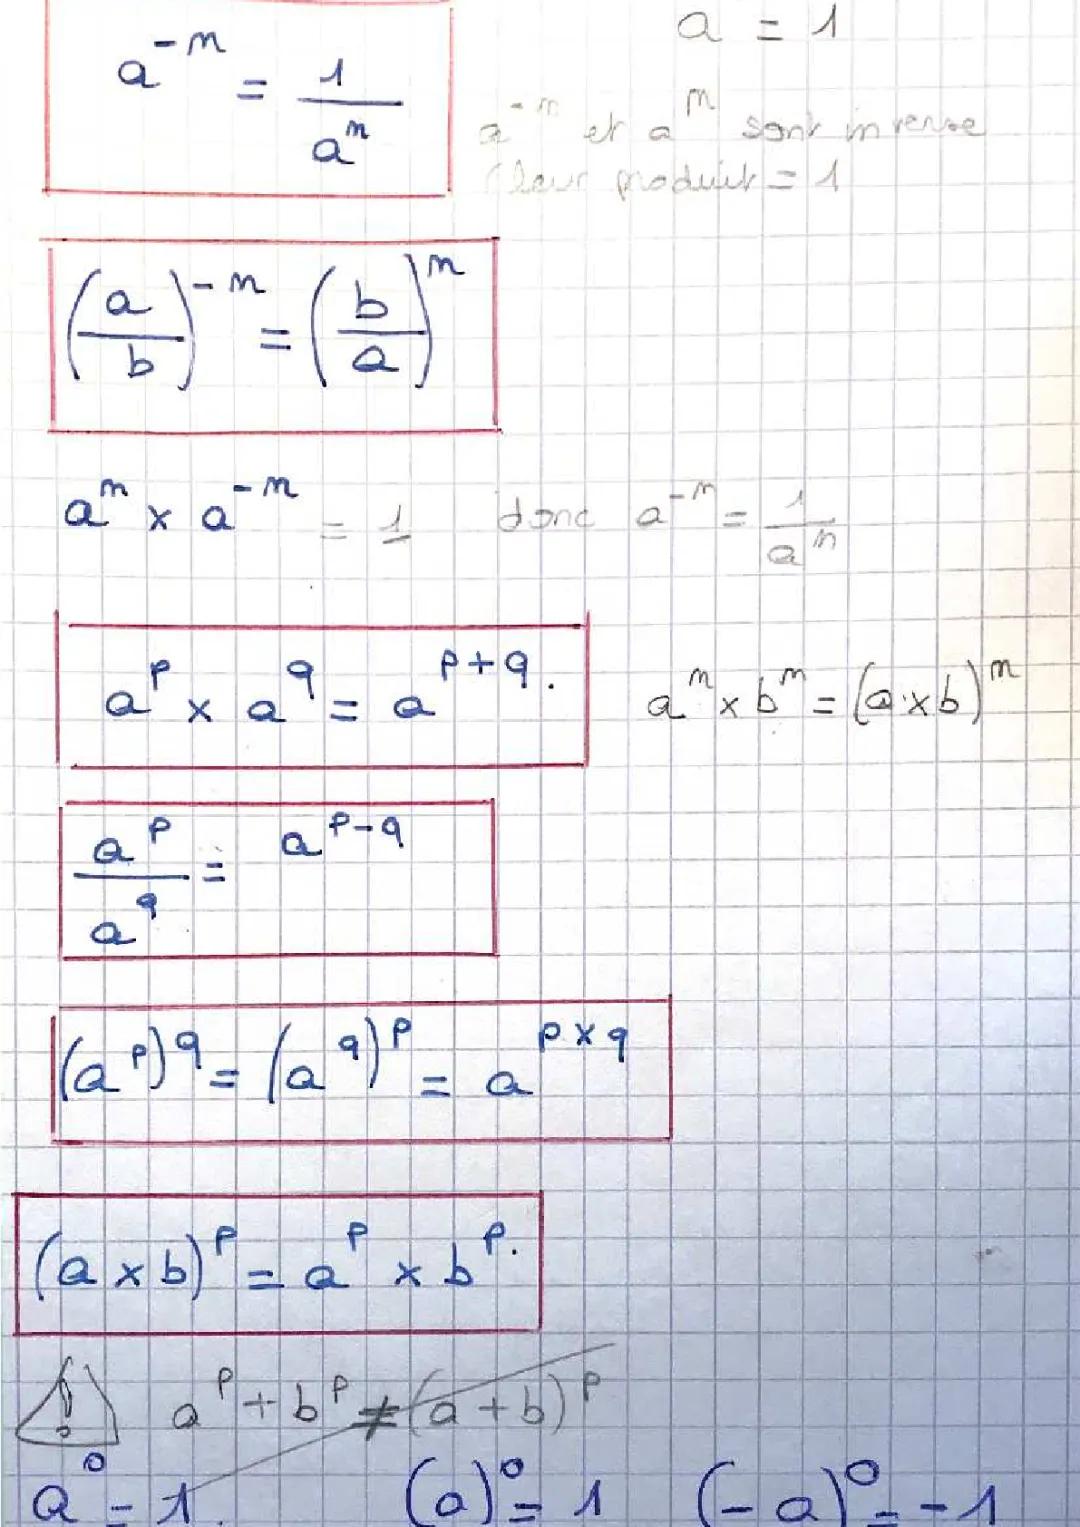 a = 1
a⁻ⁿ = 1/aⁿ
a⁻ⁿ et aⁿ sont inverse
(leur produit = 1
(a/b)⁻ⁿ = (b/a)ⁿ
aⁿ × a⁻ⁿ = 1 donc a⁻ⁿ = 1/aⁿ
aᵖ × a^q = a^(p+q). aⁿ × bⁿ = (a×b)ⁿ
aᵖ/a^q = a^(p-q)
(aᵖ)^q = (a^q)ᵖ = a^(p×q)
(a×b)ᵖ = aᵖ × bᵖ.
! aᵖ + bᵖ ≠ (a+b)ᵖ
a⁰ = 1. (a)⁰ = 1 (-a)⁰ = -1